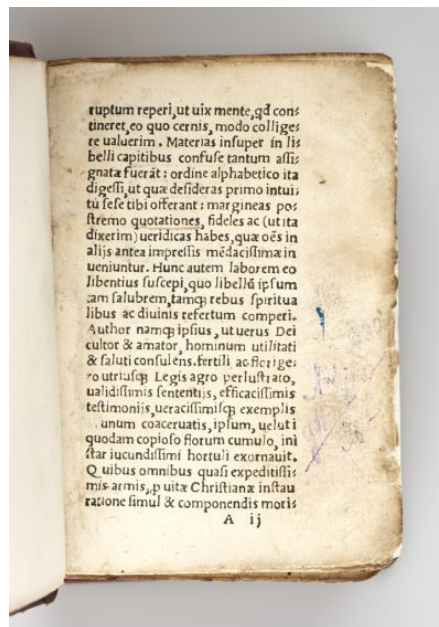 ruptum reperi, ut uix mente, qd con⸗
tineret, eo quo cernis, modo collige⸗
re ualuerim. Materias insuper in li⸗
belli capitibus confuse tantum assi⸗
gnatæ fuerãt: ordine alphabetico ita
digessi, ut quæ desideras primo intui⸗
tu sese tibi offerant: margineas po⸗
stremo quotationes, fideles ac (ut ita
dixerim) ueridicas habes, quæ oẽs in
alijs antea impressis mẽdacissimæ in
ueniuntur. Hunc autem laborem eo
libentius suscepi, quo libellũ ipsum
tam salubrem, tamqꝫ rebus spiritua
libus ac diuinis refertum comperi.
Author namqꝫ ipsius, ut uerus Dei
cultor & amator, hominum utilitati
& saluti consulens. fertili ac florige⸗
ro utriusqꝫ Legis agro perlustrato,
ualidissimis sententijs, efficacissimis
testimonijs, ueracissimisqꝫ exemplis
unum coaceruatis, ipsum, uelut i
quodam copioso florum cumulo, ini
star iucundissimi hortuli exornauit.
Quibus omnibus quasi expeditissi⸗
mis armis, ꝓ uitæ Christianæ instau
ratione simul & componendis mori⸗
A ij